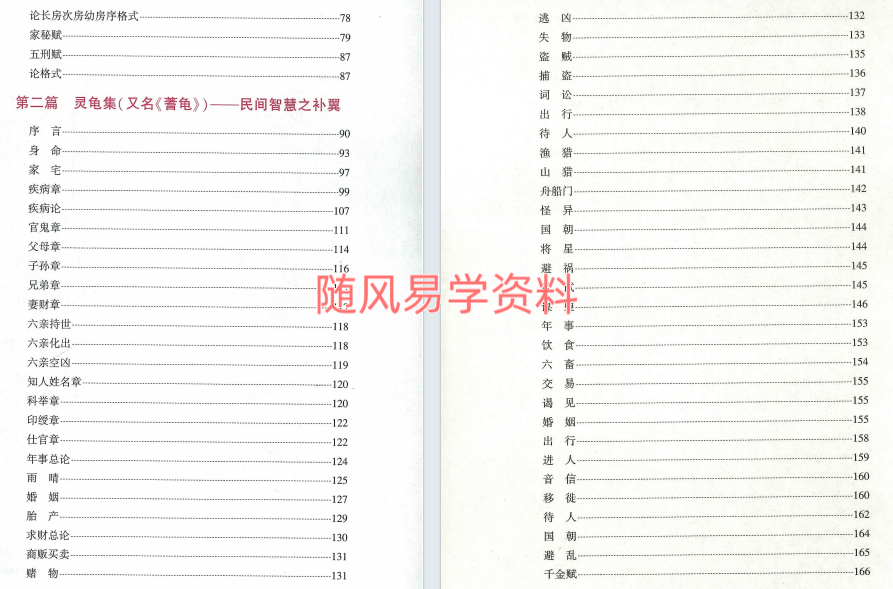 论长房次房幼房序格式 78
家秘赋 79
五刑赋 87
论格式 87
第二篇 灵龟集(又名《蓍龟》)——民间智慧之补翼
序 言 90
身 命 93
家 宅 97
疾病章 99
疾病论 107
官鬼章 111
父母章 114
子孙章 116
兄弟章
妻财章
六亲持世 118
六亲化出 118
六亲空凶 119
知人姓名章 120
科举章 120
印绶章 122
仕官章 122
年事总论 124
雨 晴 125
婚 姻 127
胎 产 129
求财总论 130
商贩买卖 131
赌 物 131
逃 凶 132
失 物 133
盗 贼 135
捕 盗 136
词 讼 137
出 行 138
待 人 140
渔 猎 141
山 猎 141
舟船门 142
怪 异 143
国 朝 144
将 星 144
避 祸 145
145
146
年 事 153
饮 食 153
六 畜 154
交 易 155
谒 见 155
婚 姻 155
出 行 158
进 人 159
音 信 160
移 徙 160
待 人 162
国 朝 164
避 乱 165
千金赋 166
随风易学资料